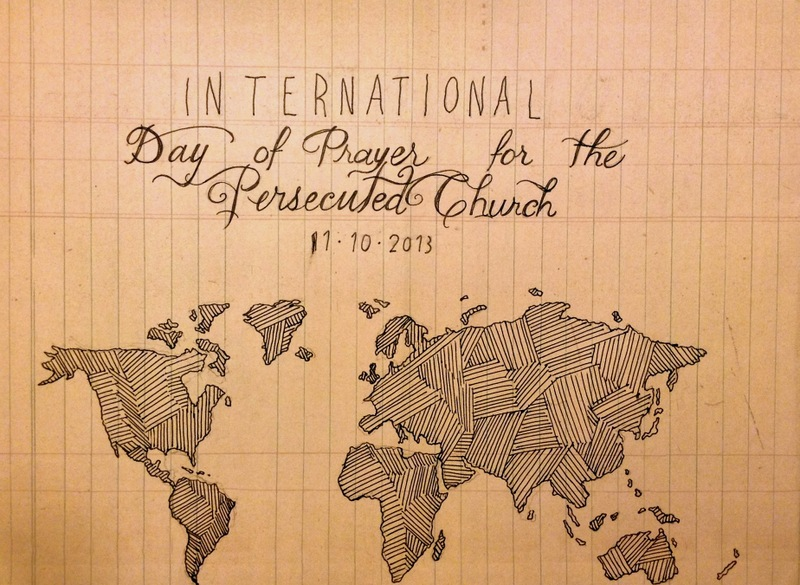 INTERNATIONAL
Day of Prayer for the
Persecuted Church
11·10·2013